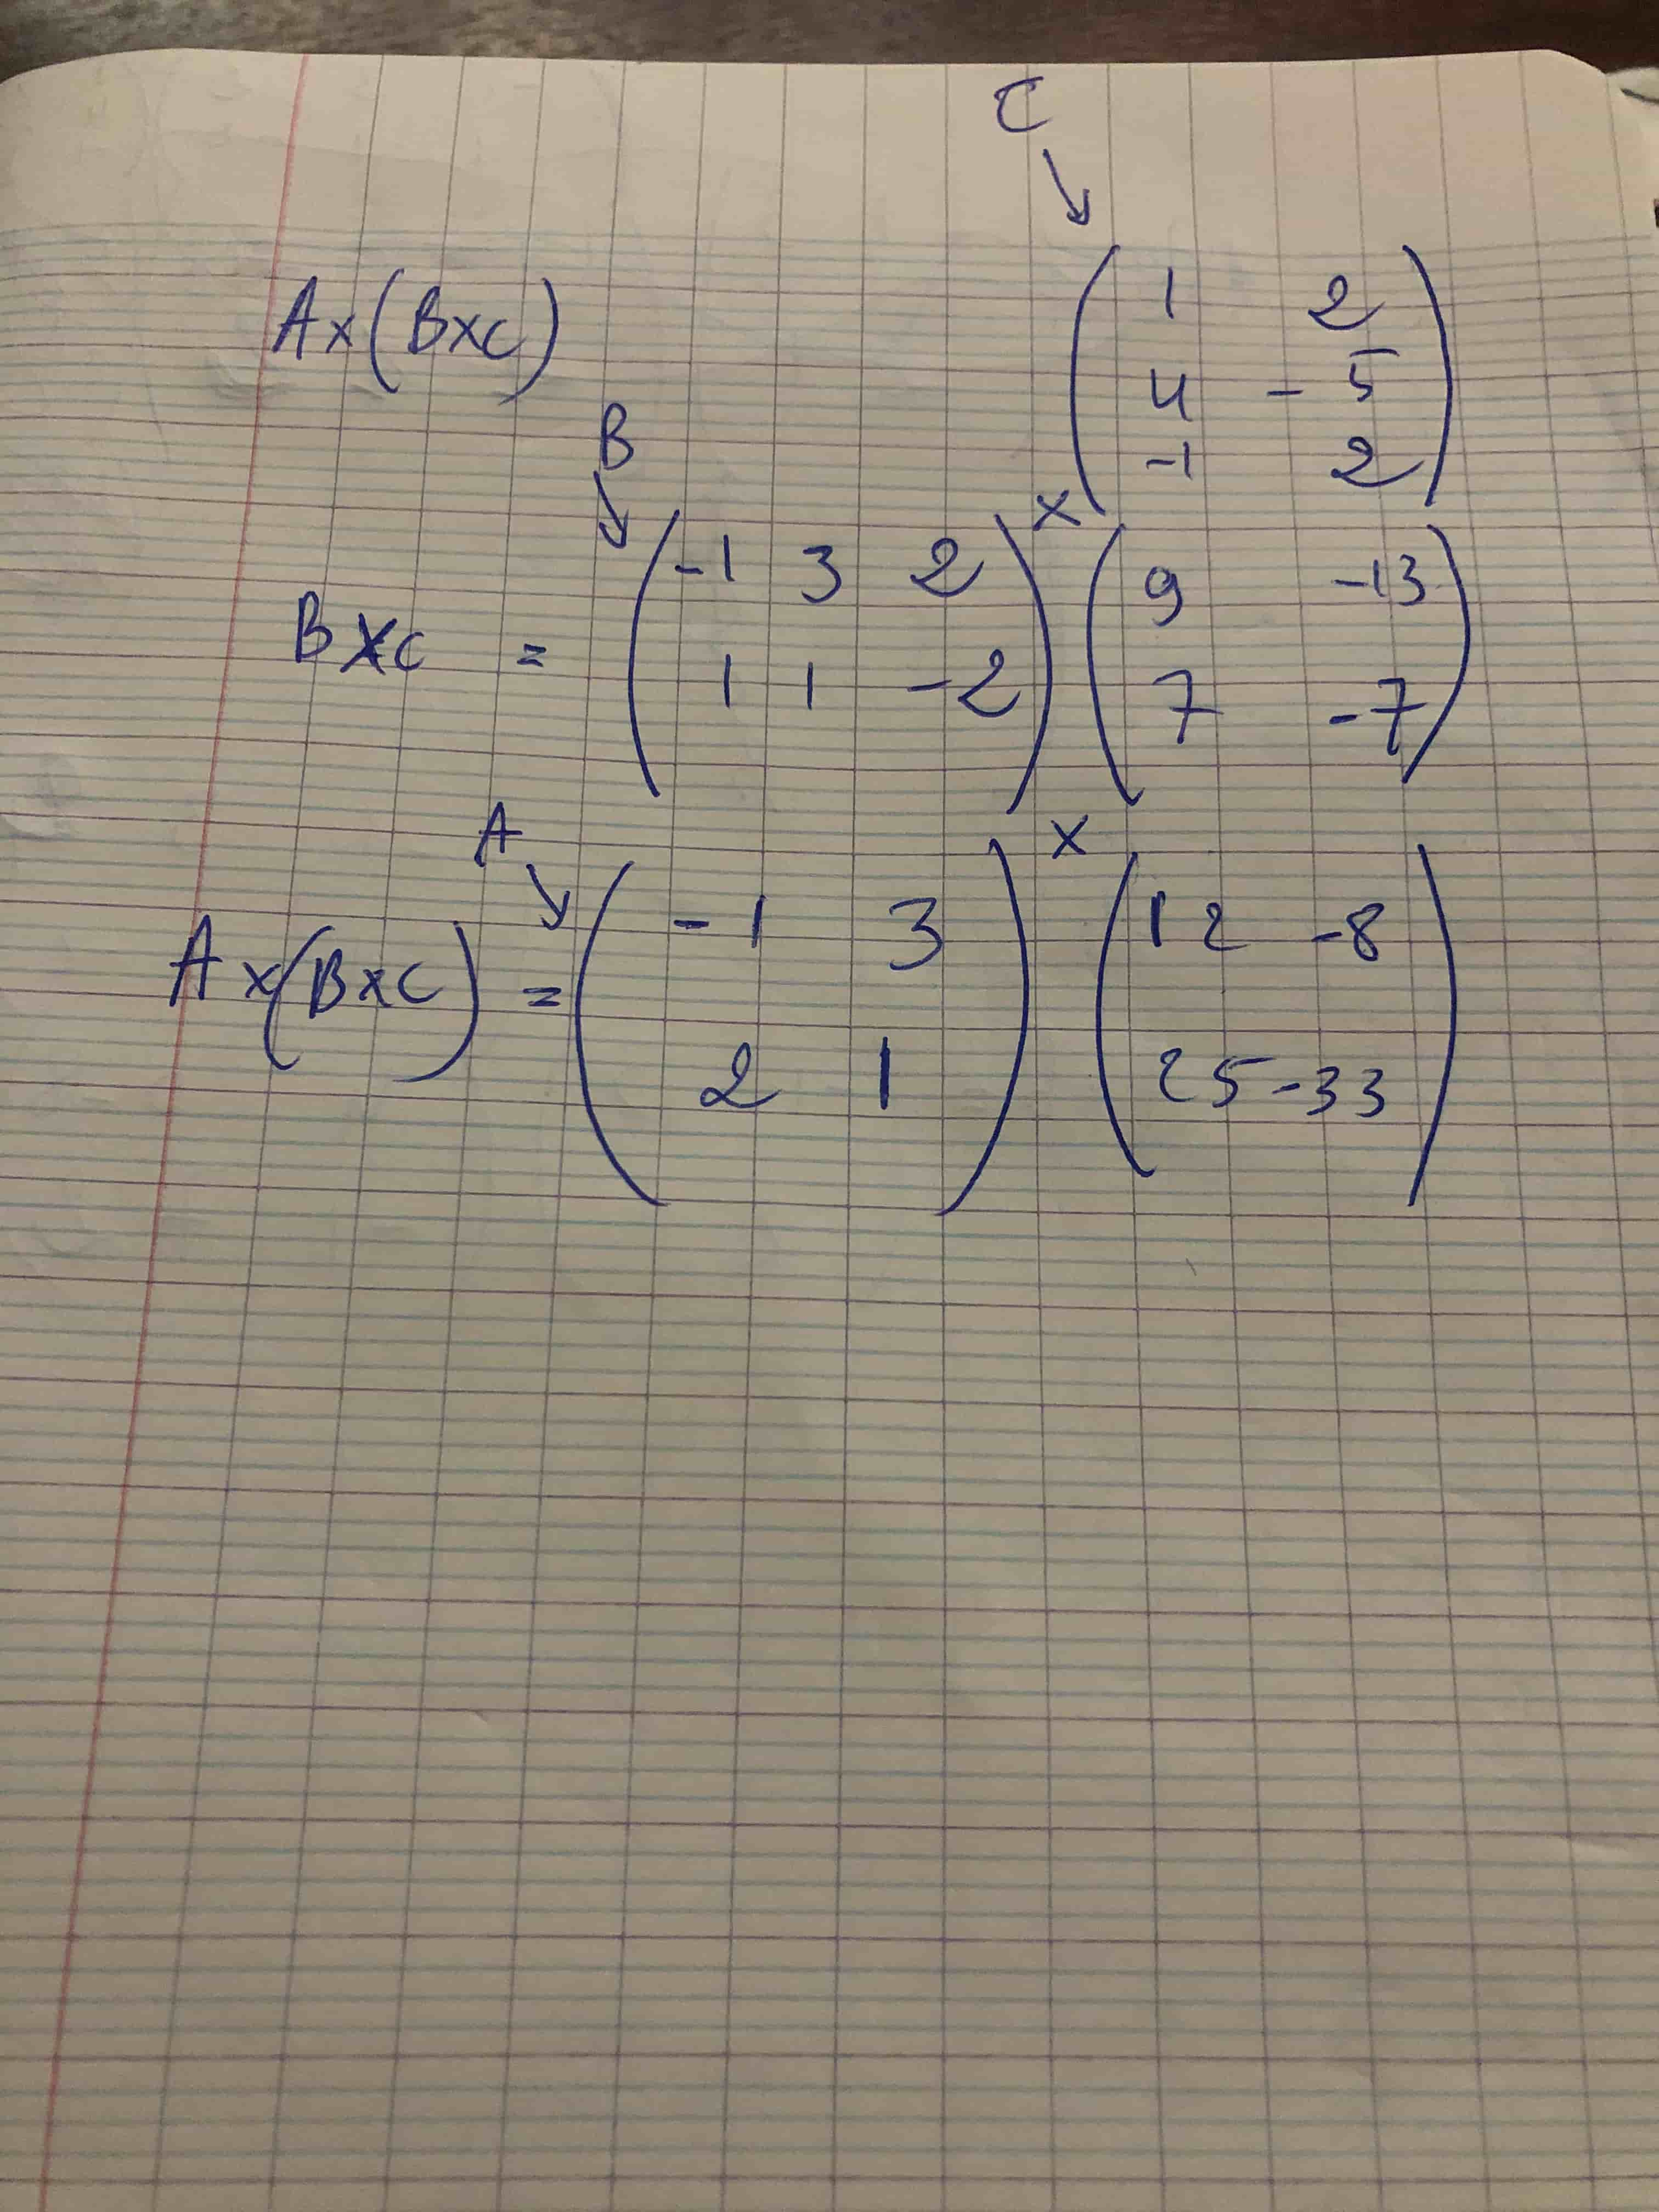 C
↓
A×(B×C)
( 1 2
4 -5
-1 2 )
B
↓
×
B×C = ( -1 3 2
1 1 -2 )
( 9 -13
7 -7 )
A
↓
×
A×(B×C) = ( -1 3
2 1 )
( 12 -8
25 -33 )